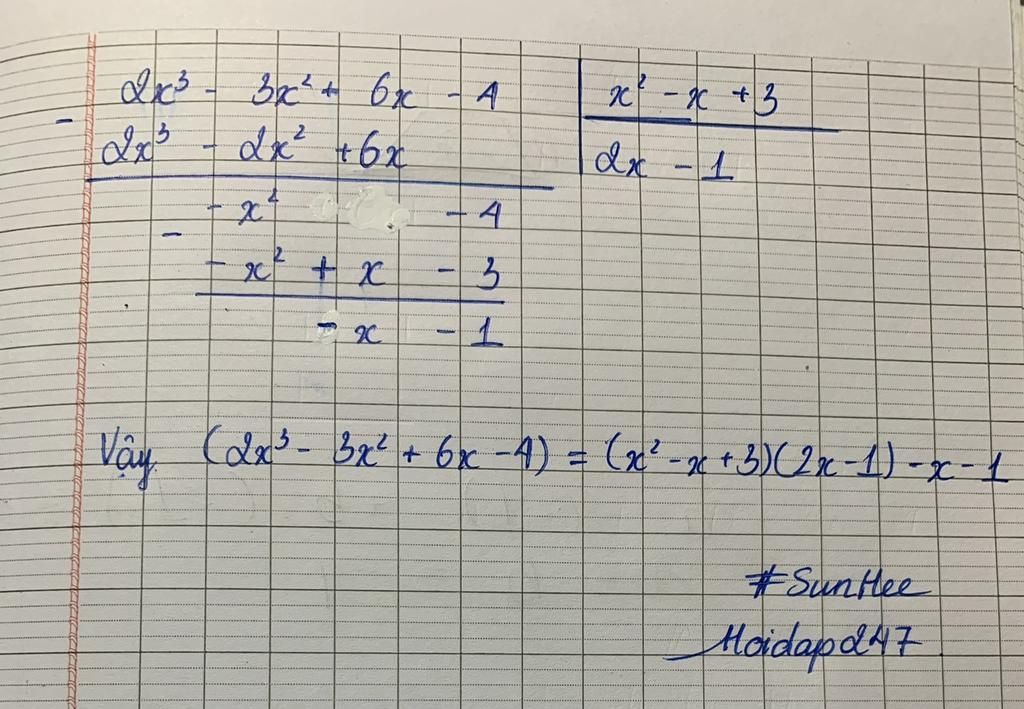 2x³ - 3x² + 6x - 4 | x² - x + 3
-
2x³ - 2x² + 6x | 2x - 1
- x² - 4
-
- x² + x - 3
- x - 1
Vậy (2x³ - 3x² + 6x - 4) = (x² - x + 3)(2x - 1) - x - 1
#SunHee
Hoidap247